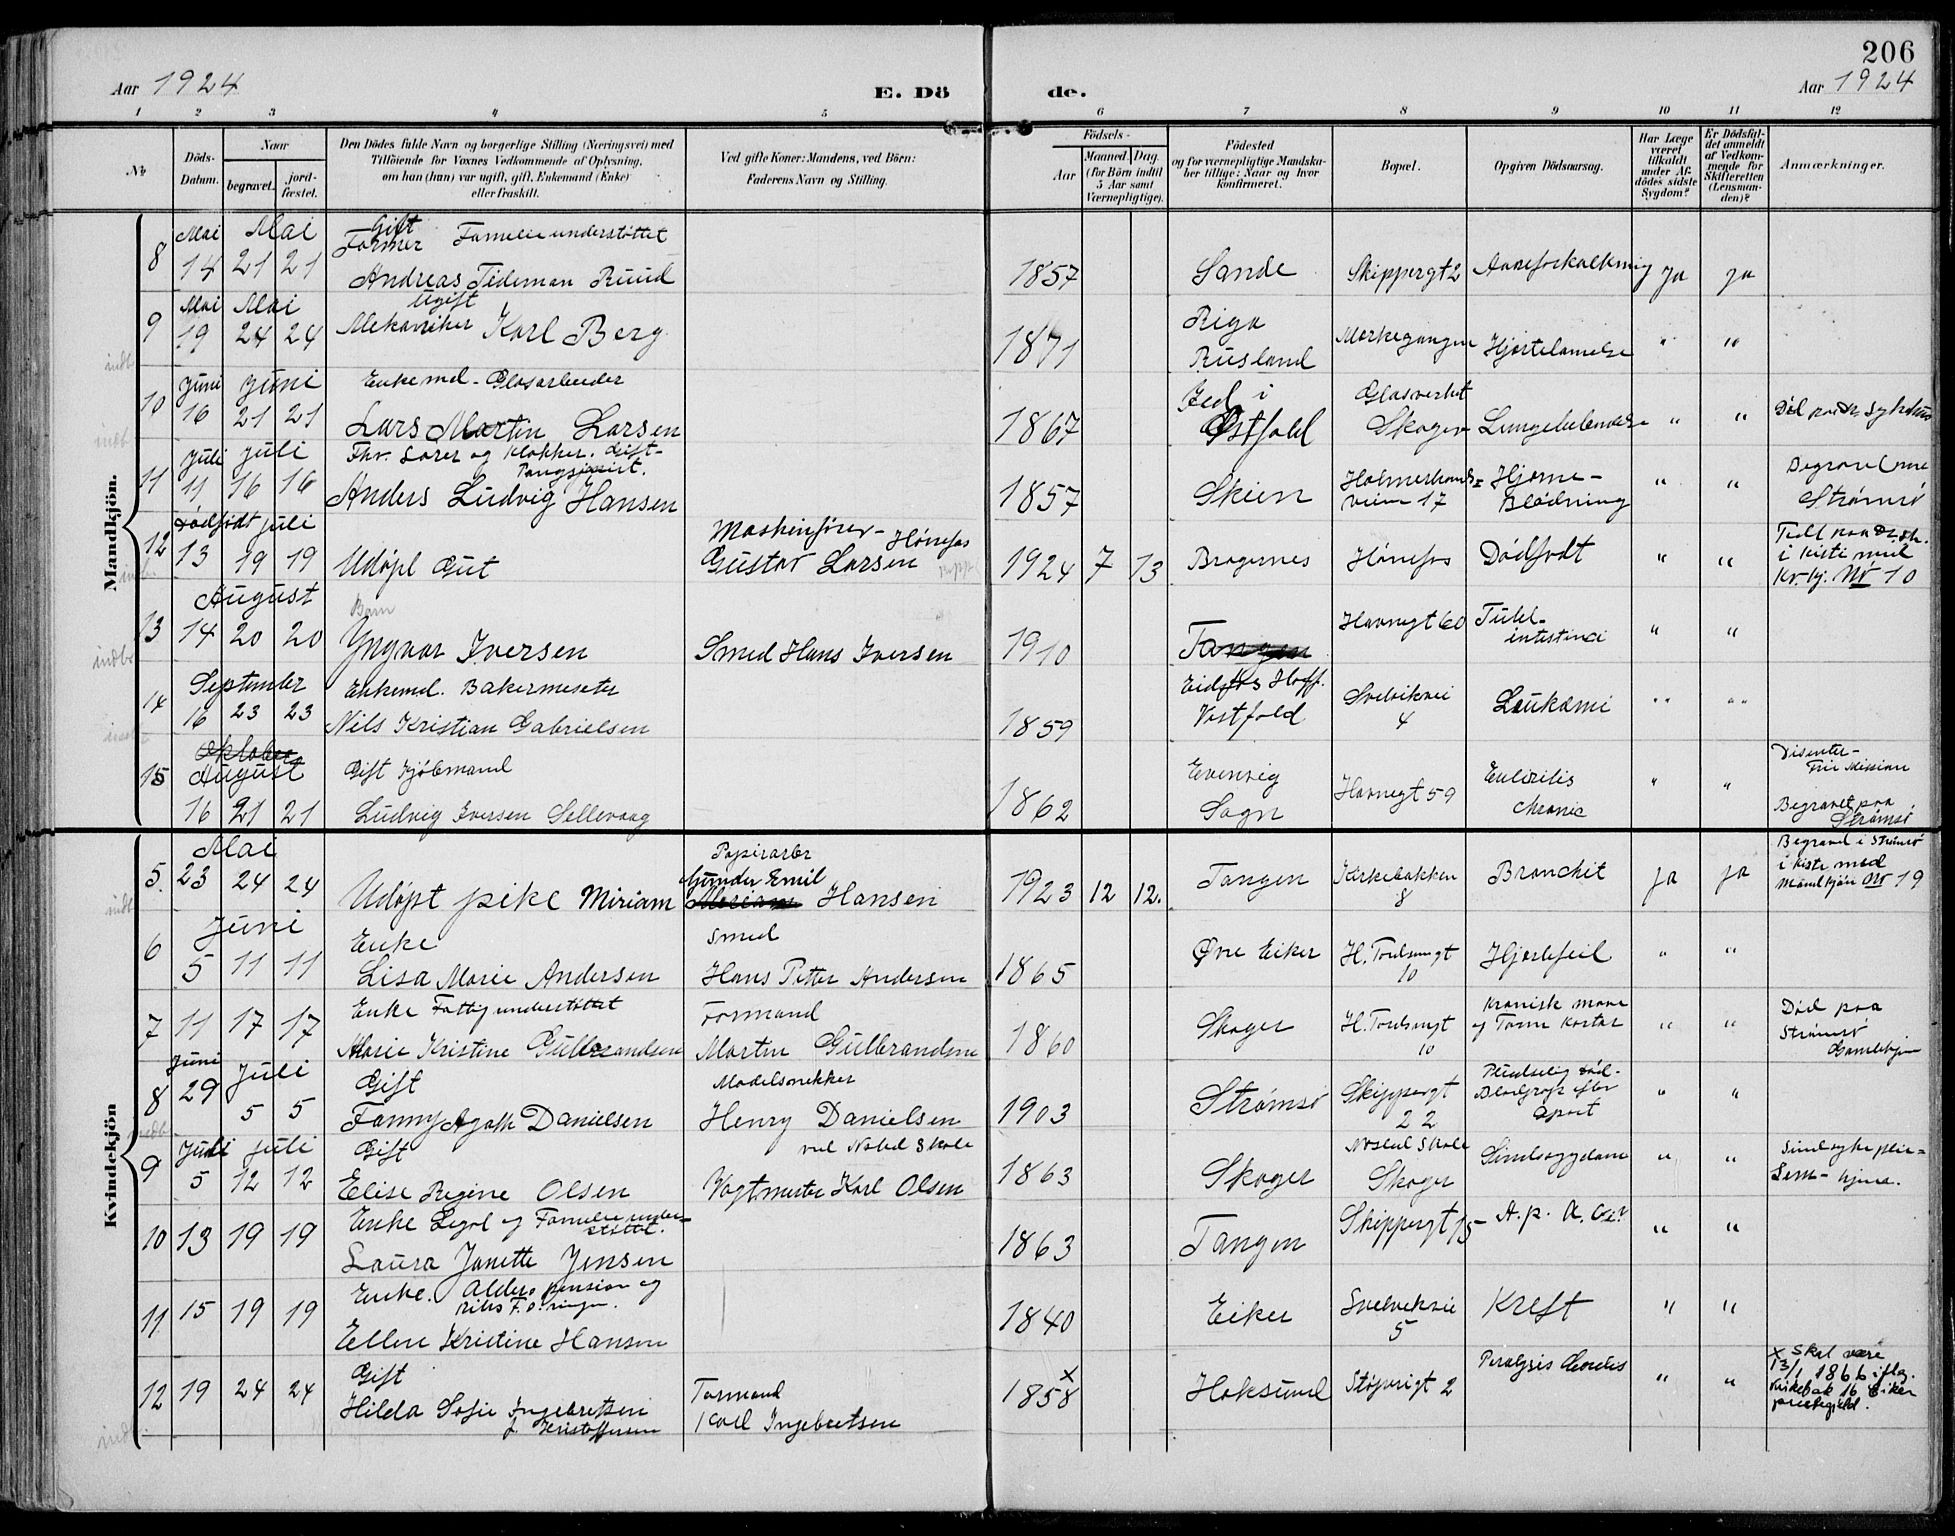 206
Aar 1924
E. Dö de.
Aar 1924
1 2 3 4 5 6 7 8 9 10 11 12
No
Döds-Datum.
Naar
begravet.
jord-fæstet.
Den Dödes fulde Navn og borgerlige Stilling (Næringsvei) med
Tilföiende for Voxnes Vedkommende af Oplysning,
om han (hun) var ugift, gift, Enkemand (Enke)
eller fraskilt.
Ved gifte Koner: Mandens, ved Börn:
Faderens Navn og Stilling.
Födsels-
Aar
Maaned. Dag.
(for Börn indtil
5 Aar samt
Værnepligtige).
Födested
og for værnepligtige Mandska-
ber tillige: Naar og hvor
konfirmeret.
Bopæl.
Opgiven Dödsaarsag.
Har Læge
været
tilkaldt
under Af-
dödes sidste
Sygdom?
Er Dödsfal-
det anmeldt
af Vedkom-
mende for
Skifteretten
(Lensman-
den)?
Anmærkninger.
Mandkjön.
Mai Mai Gift
Former Familie understøttet
8 14 21 21 Andreas Tideman Ruud 1857 Sande Skippergt 2 Aareforkalkning ja ja
Mai Mai Ugift
9 19 24 24 Mekaniker Karl Berg 1871 Riga
Rusland Hjertelamelse " "
Juni Juni Enkemd. Glasarbeider
10 16 21 21 Lars Martin Larsen 1867 i
Østfold Glasverket
Skoger " "
Juli Juli Fhv. Lærer og Klokker. Gift-
11 11 16 16 Anders Ludvig Hansen 1857 Skien
veien 17 Hjerne-
Blødning " " Strømsø
Dødfødt Juli
12 13 19 19 Udøpt Gut Maskinfører - Hønefos
Gustav Larsen 1924 7 13 Bragernes Hønefos Dødfødt " "
i kiste med
Kv.kj. No 10
August Barn
13 14 20 20 Yngvar Iversen Smed Hans Iversen 1910 Tangen Havnegt 60 " "
September Enkemd. Bakermester
14 16 23 23 Nils Kristian Gabrielsen 1859 Eidsfos Hoff.
Vestfold Svelvikvei
4 Leukæmi " "
Oktober
August Gift Kjøbmand
15 16 21 21 Ludvig Iversen Sellevaag 1862
Sogn Havnegt 59
chronic " " Disenter-
Fri Mission
Begravet paa
Strømsø
Kvindekjön
Mai Papirarb
Gunder Emil
5. 23 24 24 Udøpt pike Miriam Hansen 1923 12 12. Tangen Kirkebakken
8 Bronchit ja ja Begravet i Strømsø
i kiste med
Mandkjøn No 19
Juni Enke Smed
6 5 11 11 Lisa Marie Andersen Hans Petter Andersen 1865 Øvre Eiker
10 Hjertefeil " "
Enke Fattig understøttet Formand
7 11 17 17 Marie Kristine Gulbrandsen Martin Gulbrandsen 1860 Skoger
10 Kronisk mave
og Tarm Katar " " Død paa
Strømsø
Gamlehjem
Juni Juli Gift Modelsnekker
8 29 5 5 Fanny Agath Danielsen Henry Danielsen 1903 Strømsø Skippergt
22 " "
Juli Juli Gift
9 5 12 12 Elise Regine Olsen Vagtmester Karl Olsen 1863 Skoger
Skoger " "
Enke Legol og Familie under-
støttet.
10 13 19 19 Laura Janette Jensen 1863 Tangen Skippergt 15 " "
Enke. Alders pension og
11 15 19 19 Ellen Kristine Hansen 1840 Eiker Svelvikvei
5 Kreft " "
Gift Formand
12 19 24 24 Hilda Sofie Ingebretsen
f. Kristoffersen Karl Ingebretsen 1858 x Hoksund 2 Paralysis Cordis " " x skal være
13/1 1866 ifløg.
Kirkebok 16 Eiker
prestegjeld.